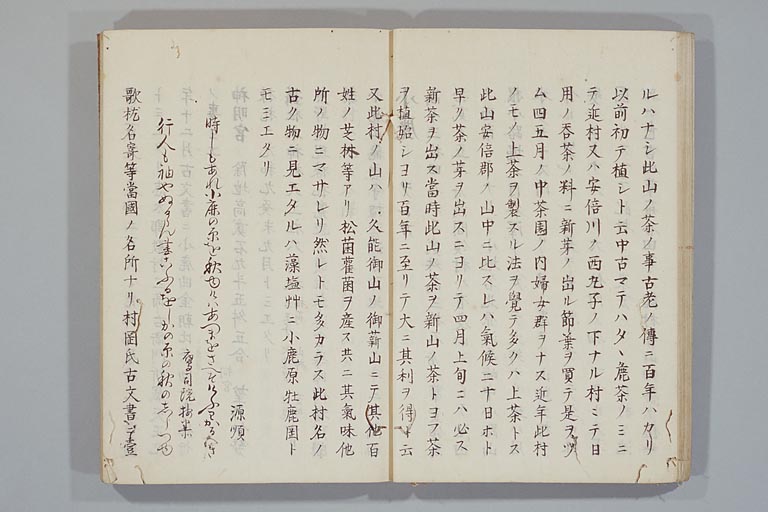 ルハナシ此山ノ茶ノ事古老ノ傳ニ百年ハカリ
以前初テ植シト云中古マテハタヽ麁茶ノミニ
テ近村又ハ安倍川ノ西丸子ノ下ナル村ミテ日
用ノ呑茶ノ料ニ新芽ノ出ル節葉ヲ買テ是ヲツ
ム四五月ノ中茶園ノ内婦女群ヲナス近年此村
ノモノ上茶ヲ製スル法ヲ覺テ多クハ上茶トス
此山安倍郡ノ山中ニ比スレハ氣候二十日ホト
早ク茶ノ芽ヲ出スニヨリテ四月上旬ニハ必ス
新茶ヲ出ス當時此山ノ茶ヲ新山ノ茶トヨフ茶
ヲ植始シヨリ百年ニ至リテ大ニ其利ヲ得ト云
又此村ノ山ハ久能御山ノ御薪山ニテ其他百
姓ノ芝林等アリ松菌雚菌ヲ産ス共ニ其氣味他
所ノ物ニマサレリ然レトモ多カラス此村名ノ
古ク物ニ見エタルハ藻塩艸ニ小鹿原牡鹿岡ト
モミエタリ
源順
時しもあれ小鹿の原を秋
鷹司院按察
行人も袖やぬるらん しかの原の秋の
歌枕名寄等當國ノ名所ナリ村岡氏古文書ニ壹